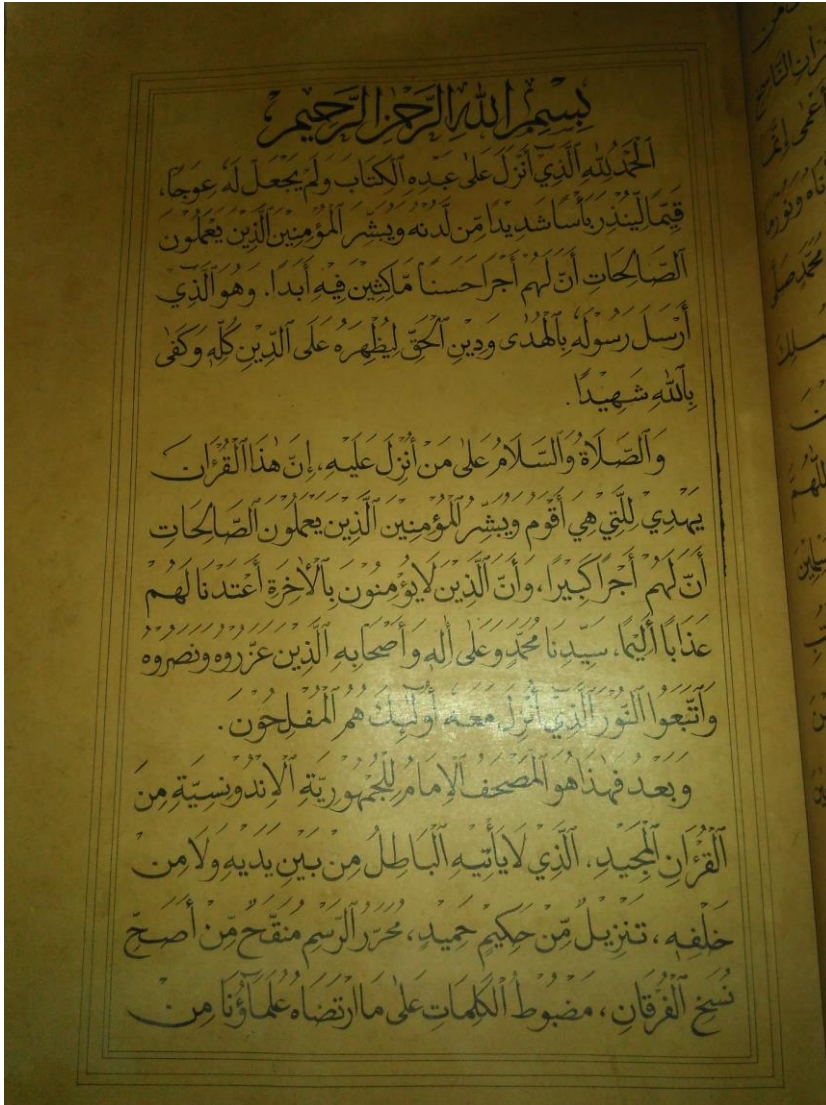 بِسْمِ اللهِ الرَّحْمٰنِ الرَّحِيْمِ
اَلْحَمْدُ لِلّٰهِ الَّذِيْٓ أَنْزَلَ عَلٰى عَبْدِهِ الْكِتَابَ وَلَمْ يَجْعَلْ لَهُ عِوَجًا،
قَيِّمًا لِّيُنْذِرَ بَأْسًا شَدِيْدًا مِّنْ لَّدُنْهُ وَيُبَشِّرَ الْمُؤْمِنِيْنَ الَّذِيْنَ يَعْمَلُوْنَ
الصَّالِحَاتِ أَنَّ لَهُمْ أَجْرًا حَسَنًا مَّاكِثِيْنَ فِيْهِ أَبَدًا. وَهُوَ الَّذِيْ
أَرْسَلَ رَسُوْلَهُ بِالْهُدٰى وَدِيْنِ الْحَقِّ لِيُظْهِرَهُ عَلَى الدِّيْنِ كُلِّهِ وَكَفٰى
بِاللهِ شَهِيْدًا.
وَالصَّلَاةُ وَالسَّلَامُ عَلٰى مَنْ أُنْزِلَ عَلَيْهِ، إِنَّ هٰذَا الْقُرْاٰنَ
يَهْدِيْ لِلَّتِيْ هِيَ أَقْوَمُ وَيُبَشِّرُ الْمُؤْمِنِيْنَ الَّذِيْنَ يَعْمَلُوْنَ الصَّالِحَاتِ
أَنَّ لَهُمْ أَجْرًا كَبِيْرًا، وَأَنَّ الَّذِيْنَ لَا يُؤْمِنُوْنَ بِالْاٰخِرَةِ أَعْتَدْنَا لَهُمْ
عَذَابًا أَلِيْمًا، سَيِّدِنَا مُحَمَّدٍ وَعَلٰى اٰلِهِ وَأَصْحَابِهِ الَّذِيْنَ عَزَّرُوْهُ وَنَصَرُوْهُ
وَاتَّبَعُوا النُّوْرَ الَّذِيْٓ أُنْزِلَ مَعَهُ أُولٰٓئِكَ هُمُ الْمُفْلِحُوْنَ.
وَبَعْدُ فَهٰذَا هُوَ الْمُصْحَفُ الْإِمَامُ لِلْجُمْهُوْرِيَّةِ الْاِنْدُوْنِسِيَّةِ مِنَ
الْقُرْاٰنِ الْمَجِيْدِ. الَّذِيْ لَا يَأْتِيْهِ الْبَاطِلُ مِنْ بَيْنِ يَدَيْهِ وَلَا مِنْ
خَلْفِهِ، تَنْزِيْلٌ مِّنْ حَكِيْمٍ حَمِيْدٍ، مُحَرَّرُ الرَّسْمِ مُنَقَّحٌ مِّنْ أَصَحِّ
نُسَخِ الْفُرْقَانِ، مَضْبُوْطُ الْكَلِمَاتِ عَلٰى مَا ارْتَضَاهُ عُلَمَآؤُنَا مِنْ